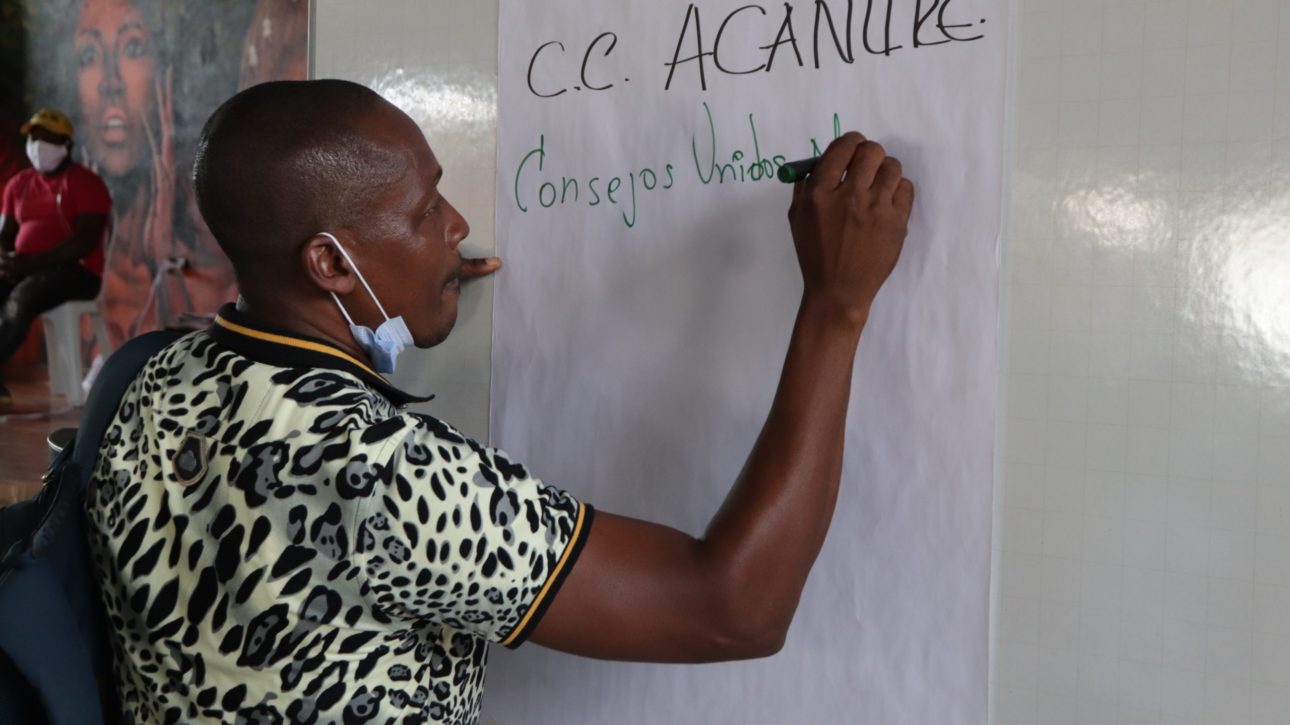 C.C. ACANUPE.
Consejos Unidos